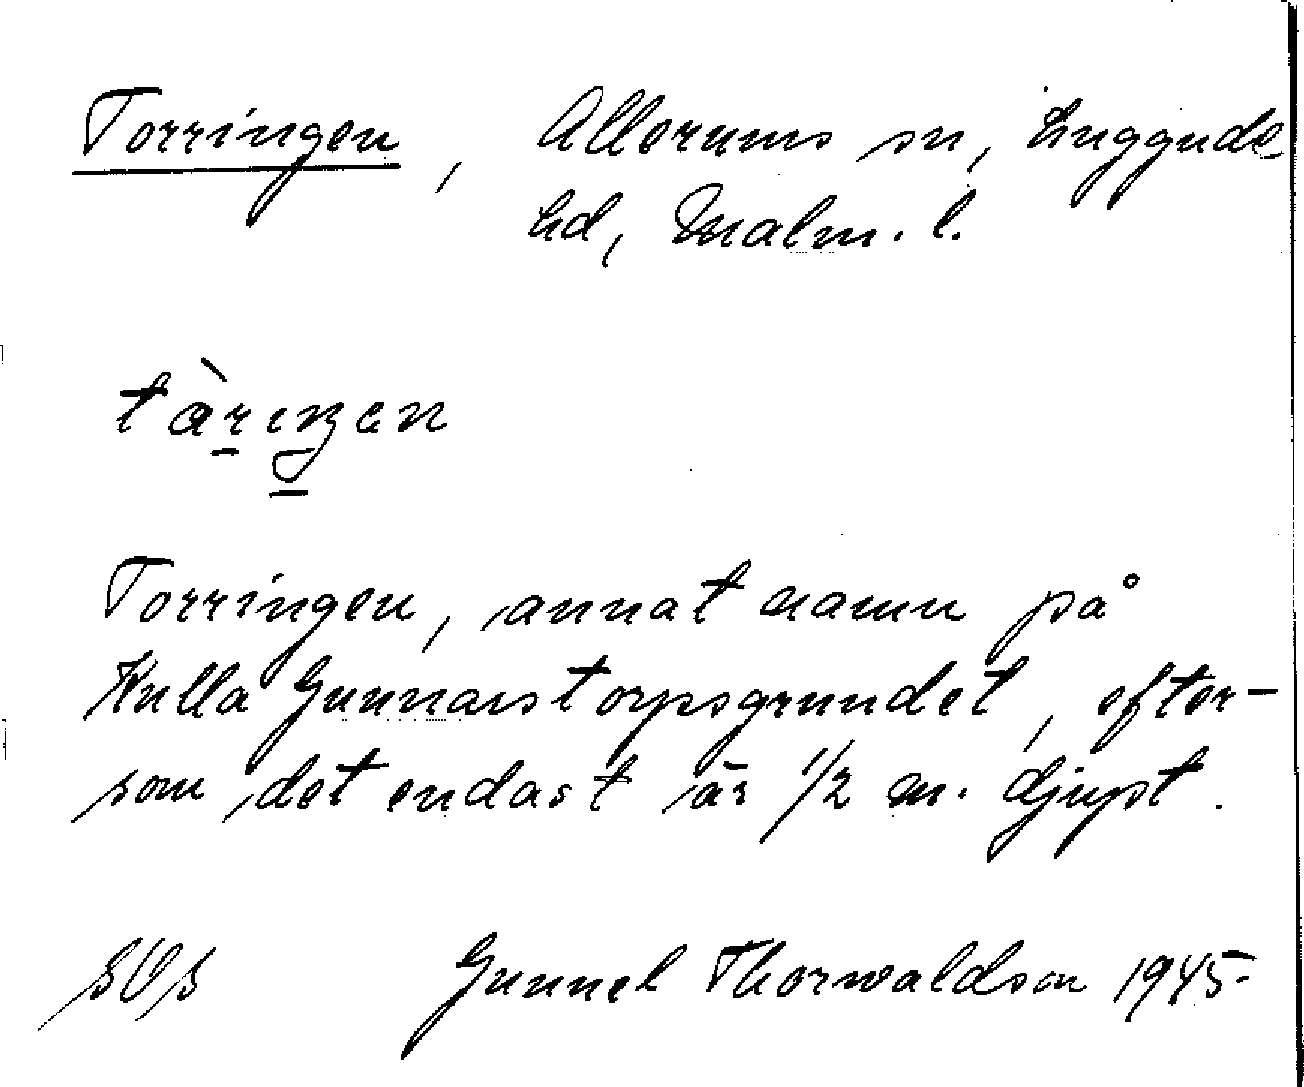 Torringen, Allerums sn, Luggude
hd, Malm. l.
tàriŋen
Torringen, annat namn på
Kulla Gunnarstorpsgrundet, efter-
som det endast är 1/2 m. djupt.
Gunnel Thorwaldson 1945